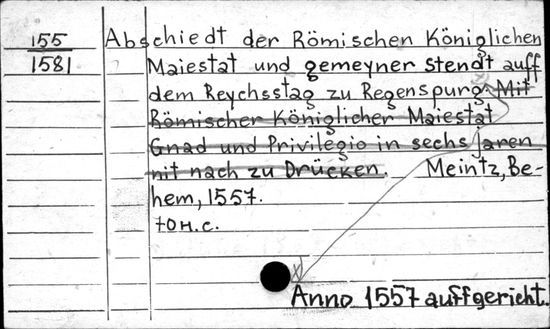 155
1581
Abschiedt der Römischen Königlichen
Maiestat und gemeyner Stendt auff
dem Reychsstag zu Regenspurg. Mit
Römischer Königlicher Maiestat
Gnad und Privilegio in sechs jaren
nit nach zu Drücken. Meintz, Be-
hem, 1557.
x)
Anno 1557 auffgericht.